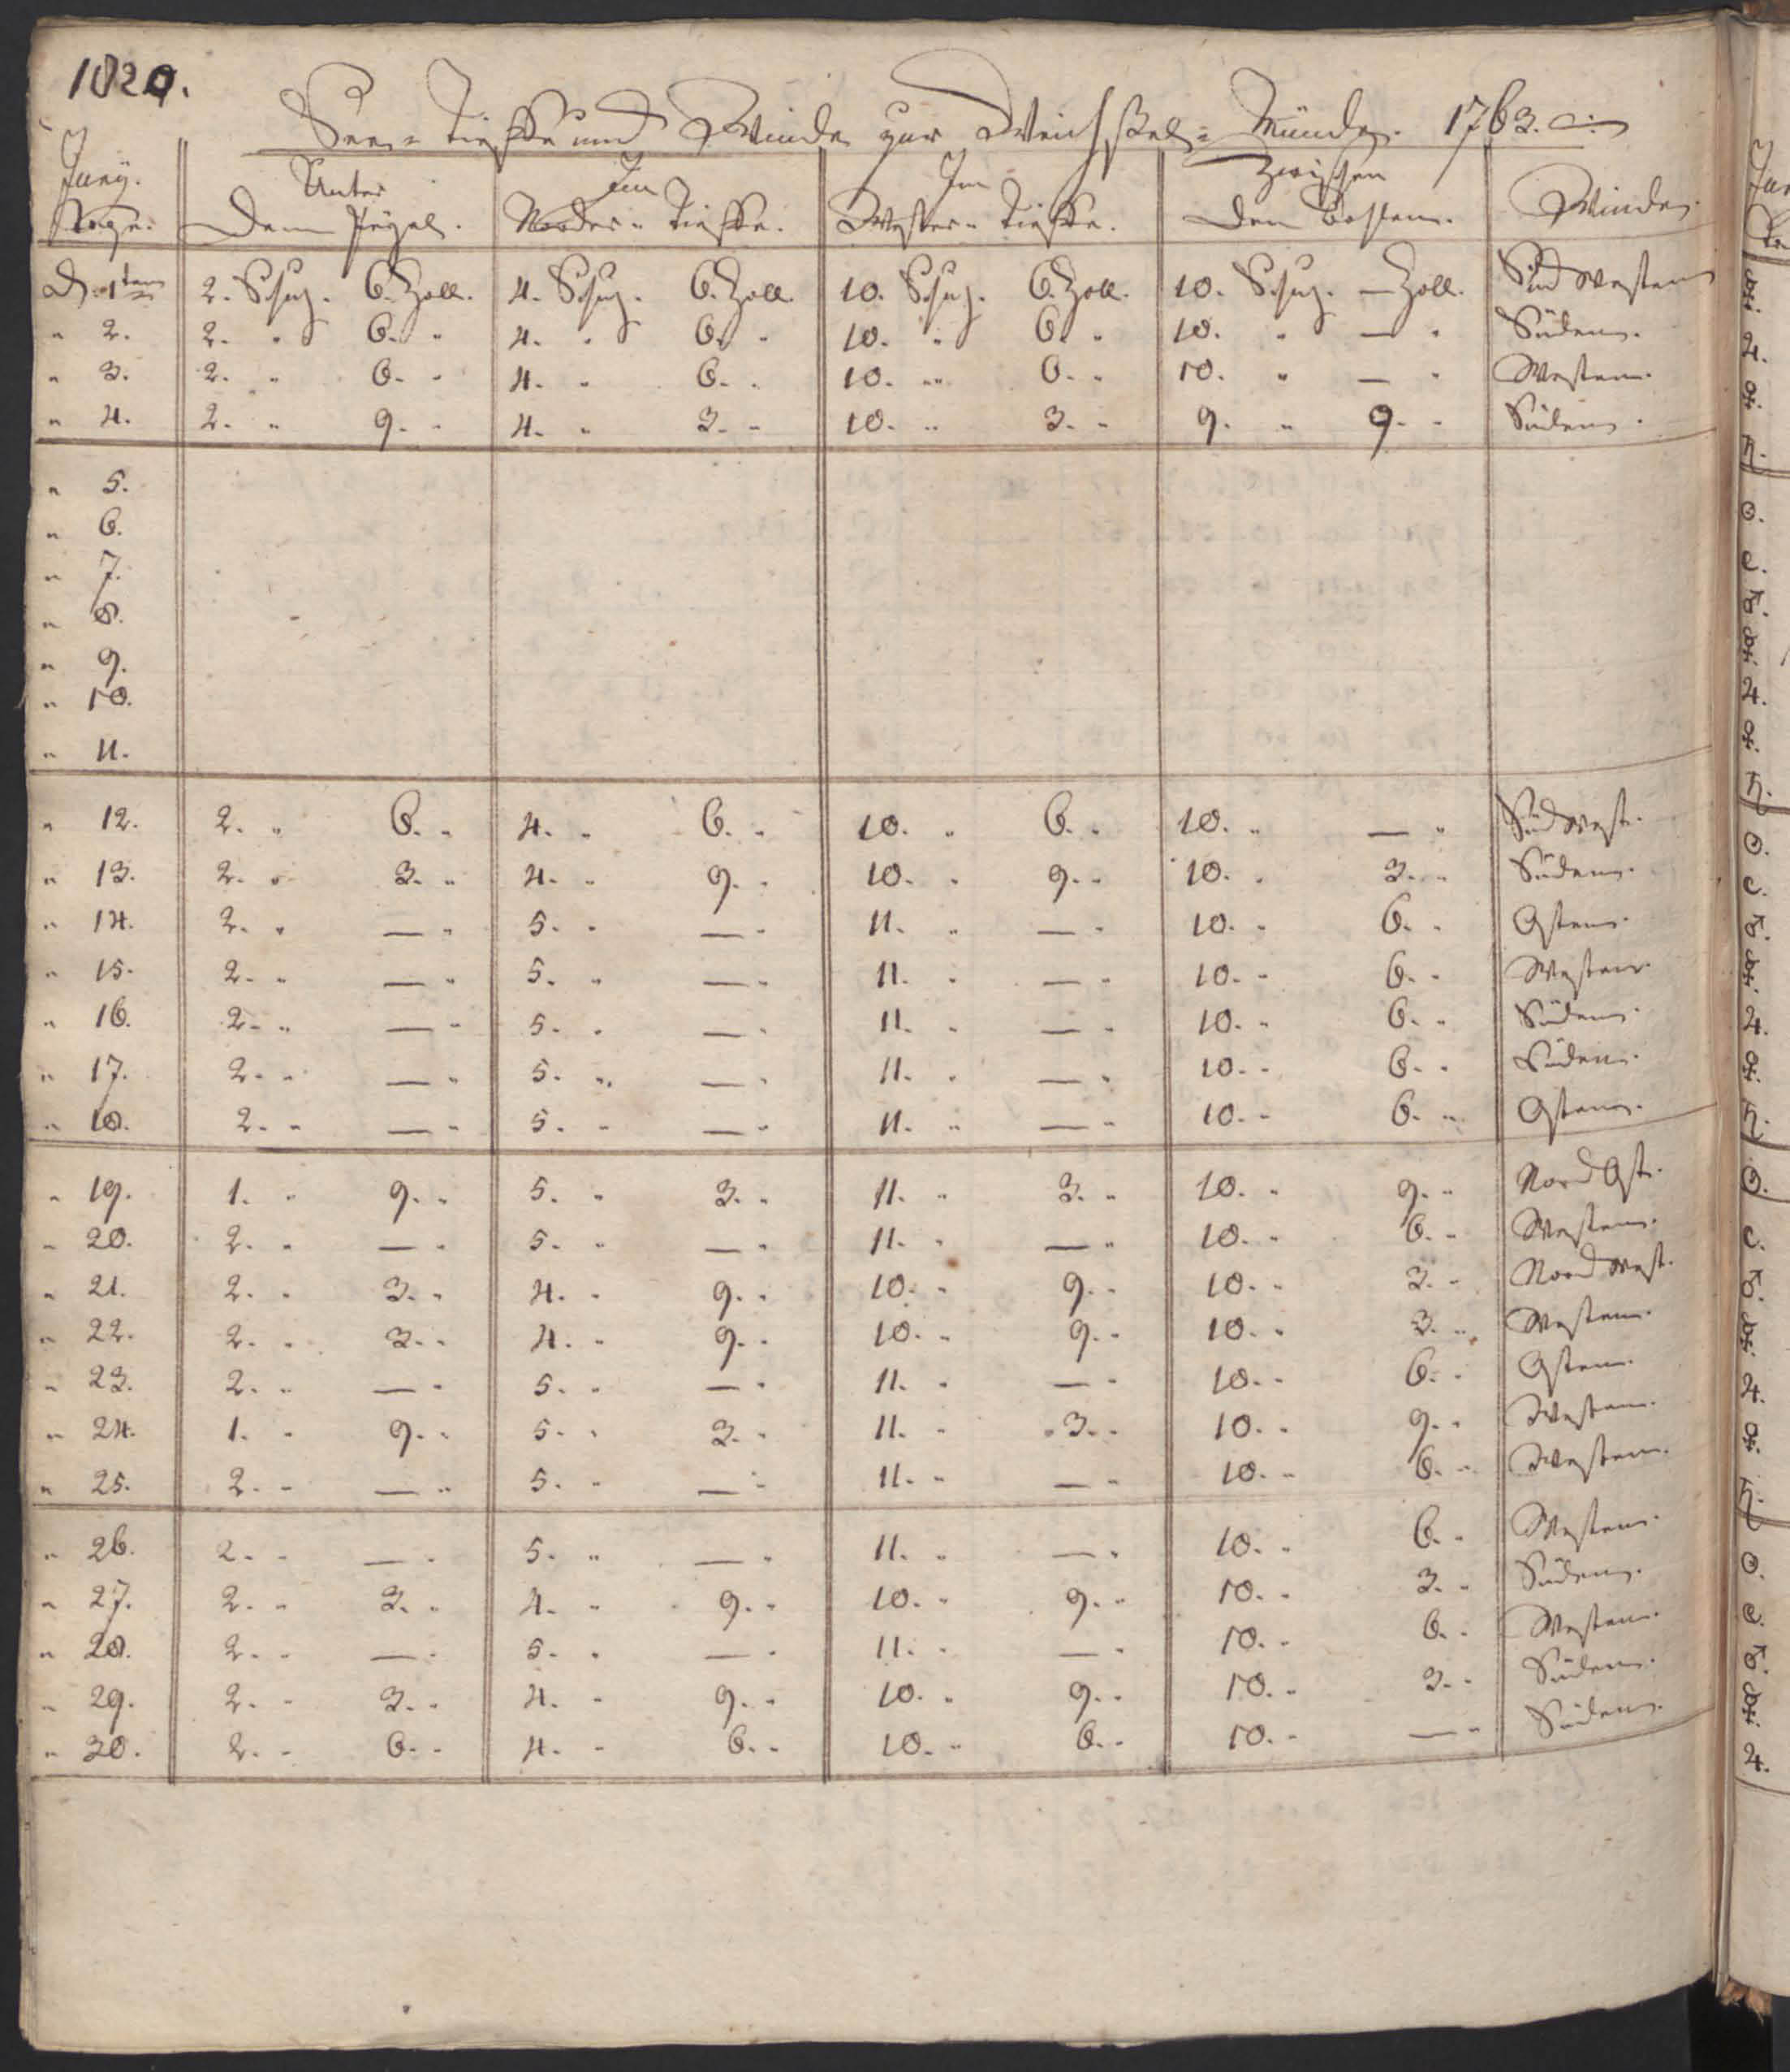 1820.
See- Tieffe und Winde zur Weichßel- Münde. 1763.
Juny. Unter Im Im Zwischen
Tage. Dem Pegel. Norder- Tieffe. Wester- Tieffe. den Bosten. Winde.
D. 1ten 2. Schug. 6. Zoll. 4. Schug. 6. Zoll. 10. Schug. 6. Zoll. 10. Schug. — Zoll. Süd Westen
" 2. 2. " 6. " 4. " 6. " 10. " 6. " 10. " — " Süden.
" 3. 2. " 6. " 4. " 6. " 10. " 6. " 10. " — " Westen.
" 4. 2. " 9. " 4. " 3. " 10. " 3. " 9. " 9. " Süden.
" 5.
" 6.
" 7.
" 8.
" 9.
" 10.
" 11.
" 12. 2. " 6. " 4. " 6. " 10. " 6. " 10. " — " Südwest.
" 13. 2. " 3. " 4. " 9. " 10. " 9. " 10. " 3. " Süden.
" 14. 2. " — " 5. " — " 11. " — " 10. " 6. " Osten.
" 15. 2. " — " 5. " — " 11. " — " 10. " 6. " Westen.
" 16. 2. " — " 5. " — " 11. " — " 10. " 6. " Süden.
" 17. 2. " — " 5. " — " 11. " — " 10. " 6. " Süden.
" 18. 2. " — " 5. " — " 11. " — " 10. " 6. " Osten.
" 19. 1. " 9. " 5. " 3. " 11. " 3. " 10. " 9. " Nord Ost.
" 20. 2. " — " 5. " — " 11. " — " 10. " 6. " Westen.
" 21. 2. " 3. " 4. " 9. " 10. " 9. " 10. " 3. " Nord West.
" 22. 2. " 3. " 4. " 9. " 10. " 9. " 10. " 3. " Westen.
" 23. 2. " — " 5. " — " 11. " — " 10. " 6. " Osten.
" 24. 1. " 9. " 5. " 3. " 11. " 3. " 10. " 9. " Westen.
" 25. 2. " — " 5. " — " 11. " — " 10. " 6. " Westen.
" 26. 2. " — " 5. " — " 11. " — " 10. " 6. " Westen.
" 27. 2. " 3. " 4. " 9. " 10. " 9. " 10. " 3. " Süden.
" 28. 2. " — " 5. " — " 11. " — " 10. " 6. " Westen.
" 29. 2. " 3. " 4. " 9. " 10. " 9. " 10. " 3. " Süden.
" 30. 2. " 6. " 4. " 6. " 10. " 6. " 10. " — " Süden.